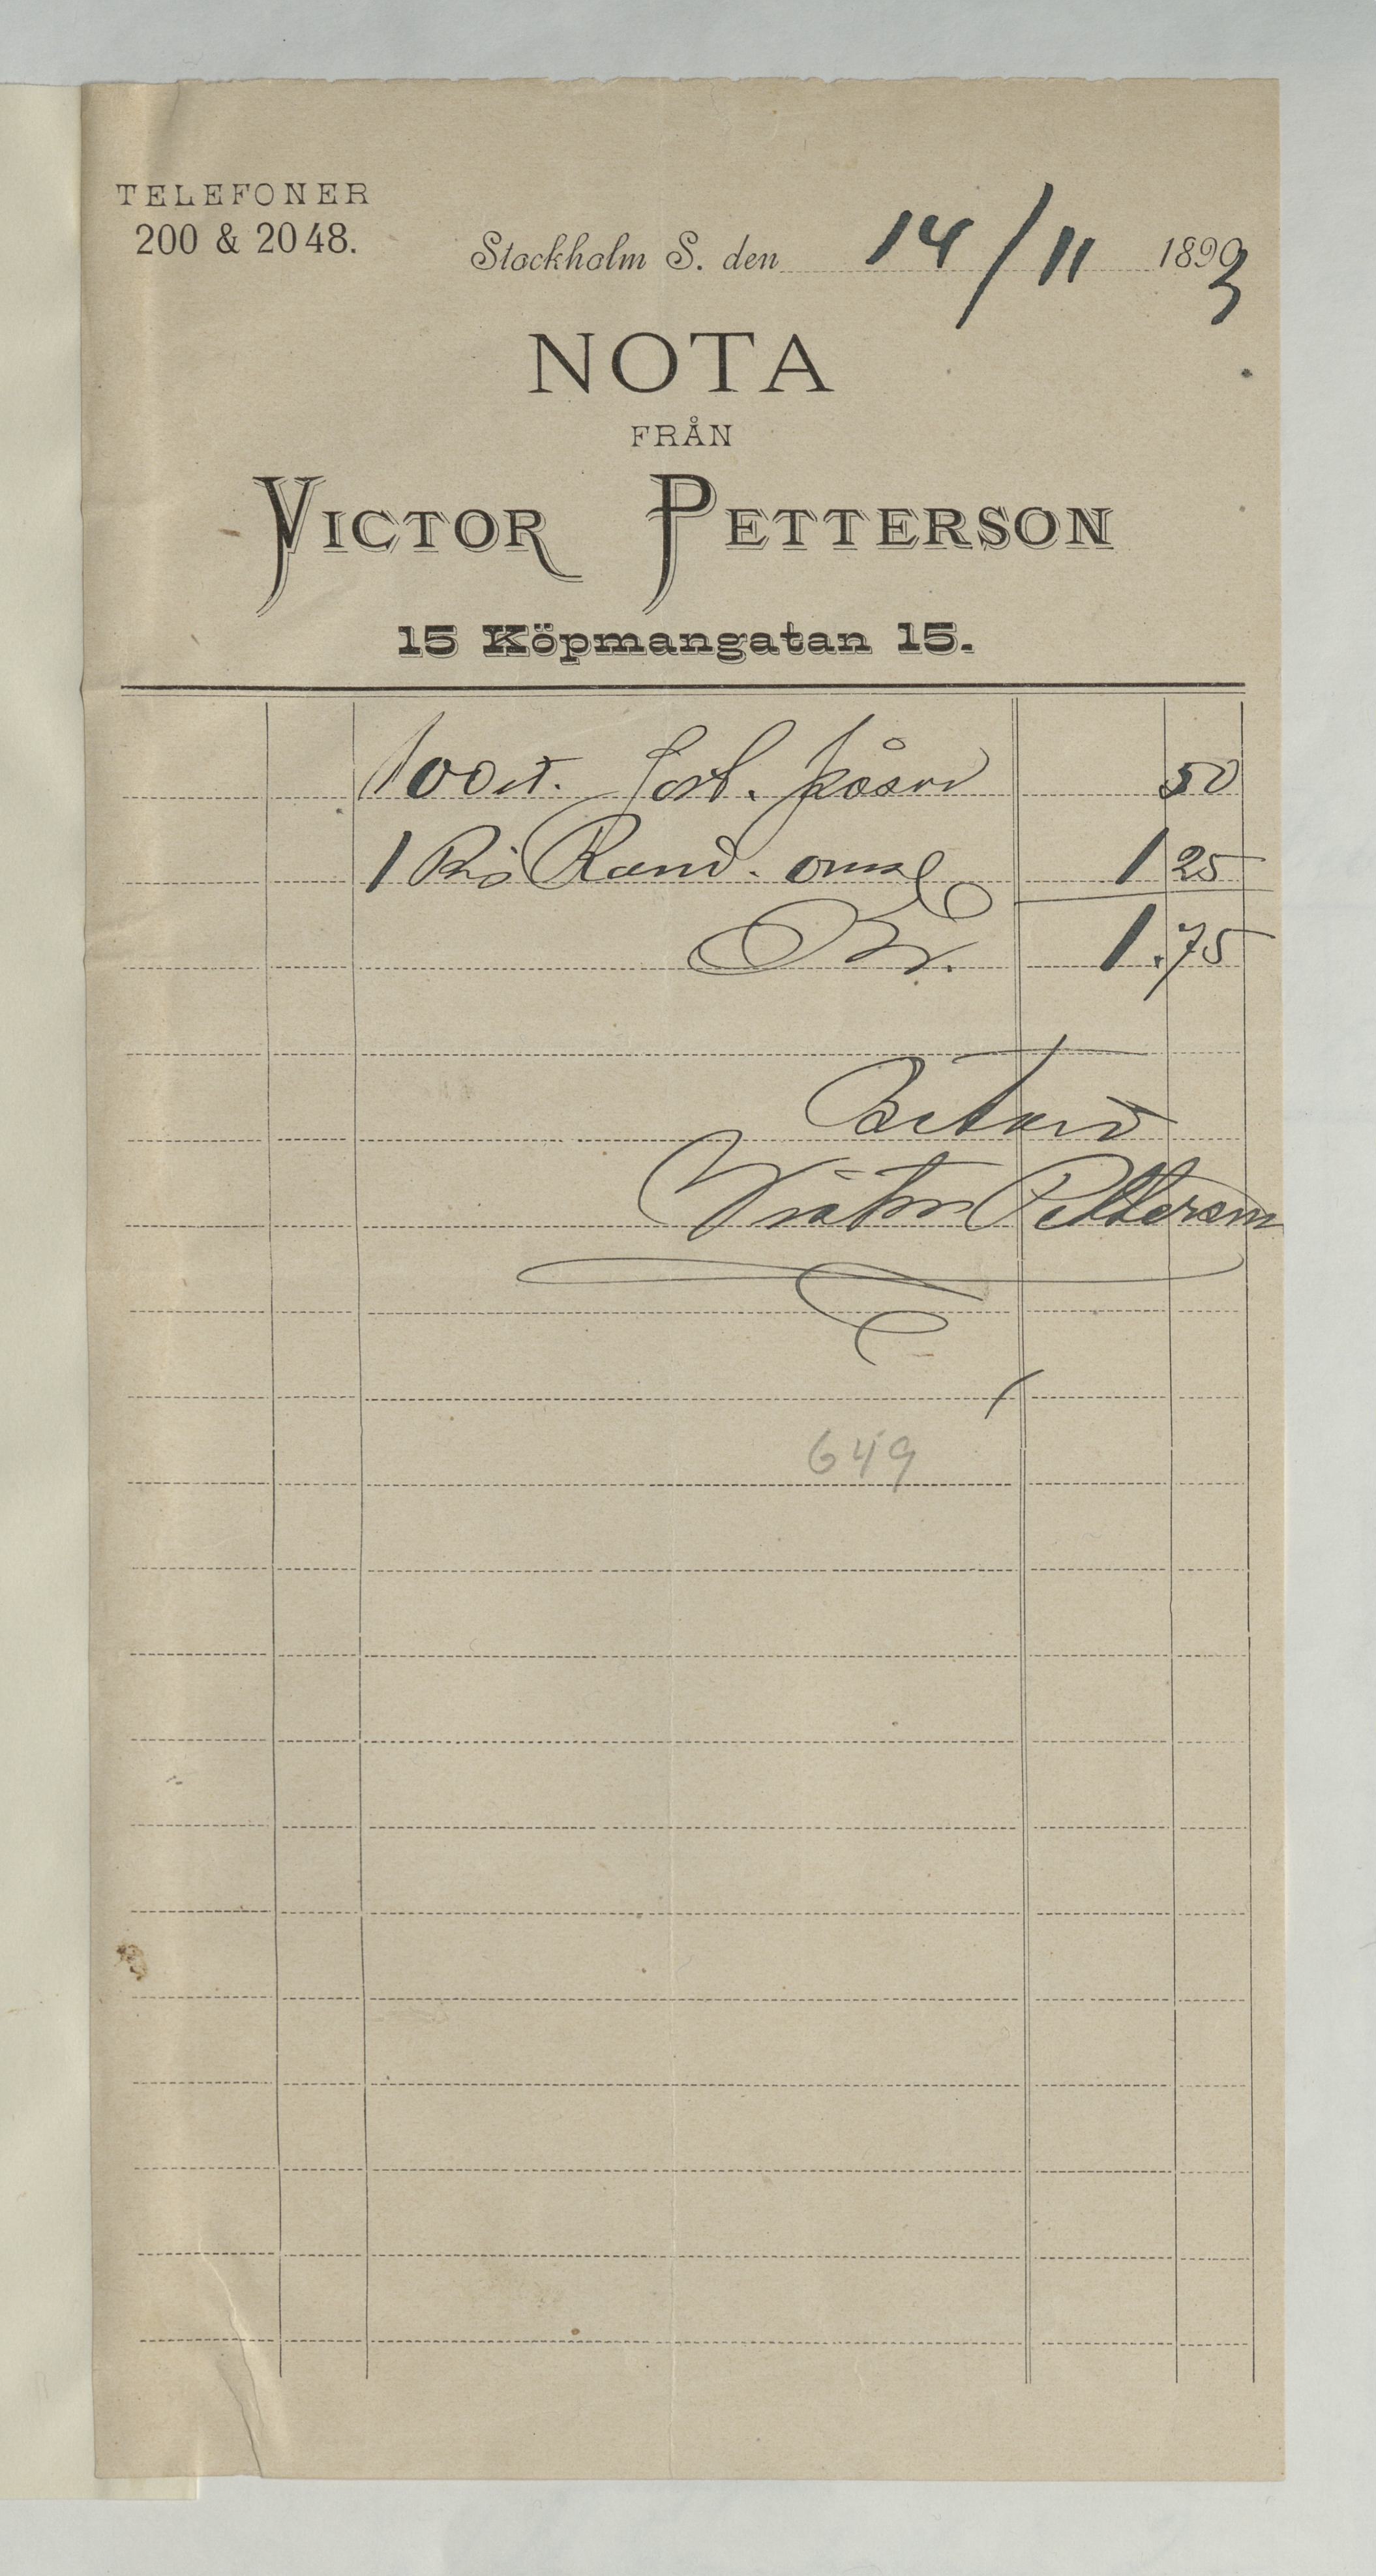 TELEFONER
200 & 2048.
Stockholm S. den 14/11 1893
NOTA
FRÅN
VICTOR PETTERSON
15 Köpmangatan 15.
100 st. påsar 50
1 Ris omsl 1 25
Kr. 1.75
Betald
Victor Petterson
649